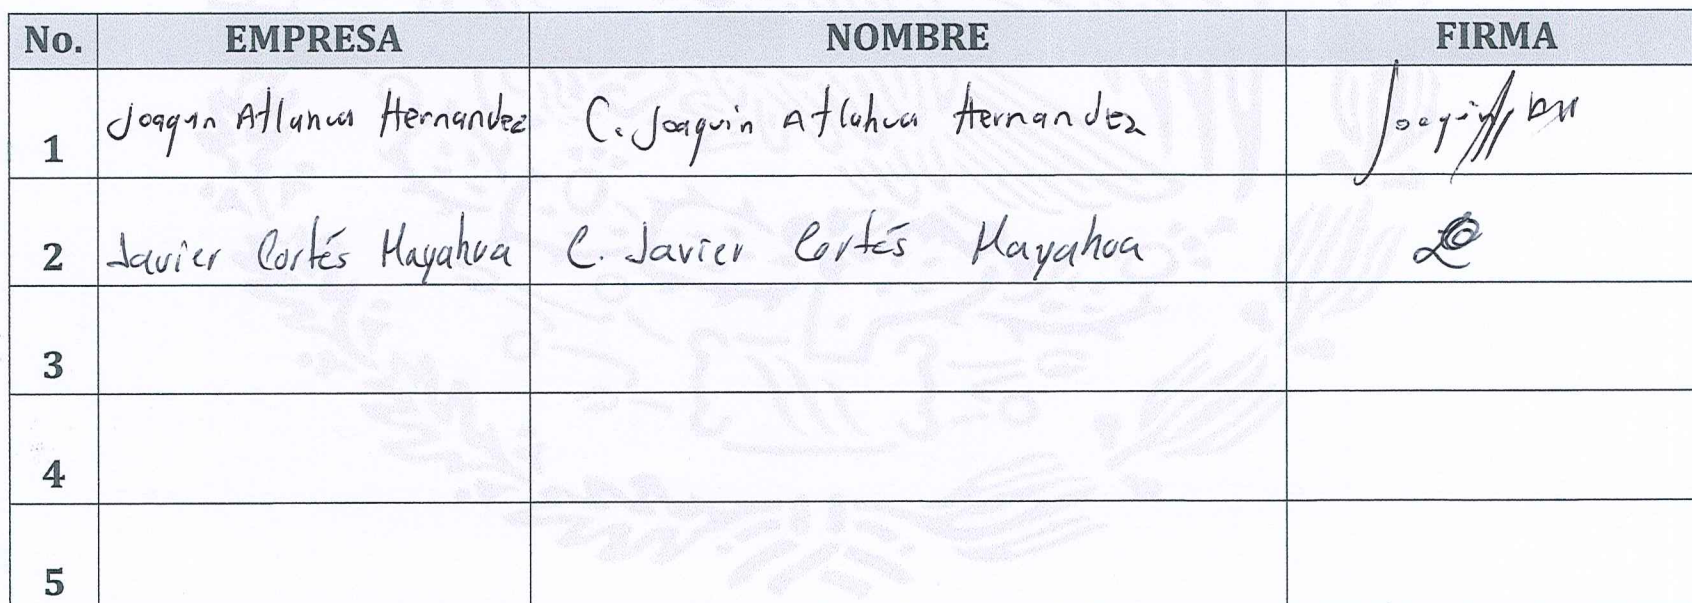 No. EMPRESA NOMBRE FIRMA
1 Joaquin Atlahua Hernandez C. Joaquin Atlahua Hernandez Joaquin
2 Javier Cortés Mayahua C. Javier Cortés Mayahua
3
4
5